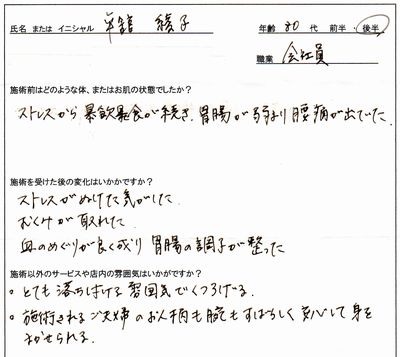 氏名 または イニシャル 平舘 綾子
年齢 30 代 前半・後半
職業 会社員
施術前はどのような体、またはお肌の状態でしたか？
ストレスから暴飲暴食が続き、胃腸が弱まり腰痛が出ていた
施術を受けた後の変化はいかかですか？
ストレスがぬけた気がした
むくみが取れた
血のめぐりが良く成り 胃腸の調子が整った
施術以外のサービスや店内の雰囲気はいかがですか？
。とても落ち付ける雰囲気でくつろげる。
。施術されるご夫婦のお人柄も腕もすばらしく安心して身を
まかせられる。